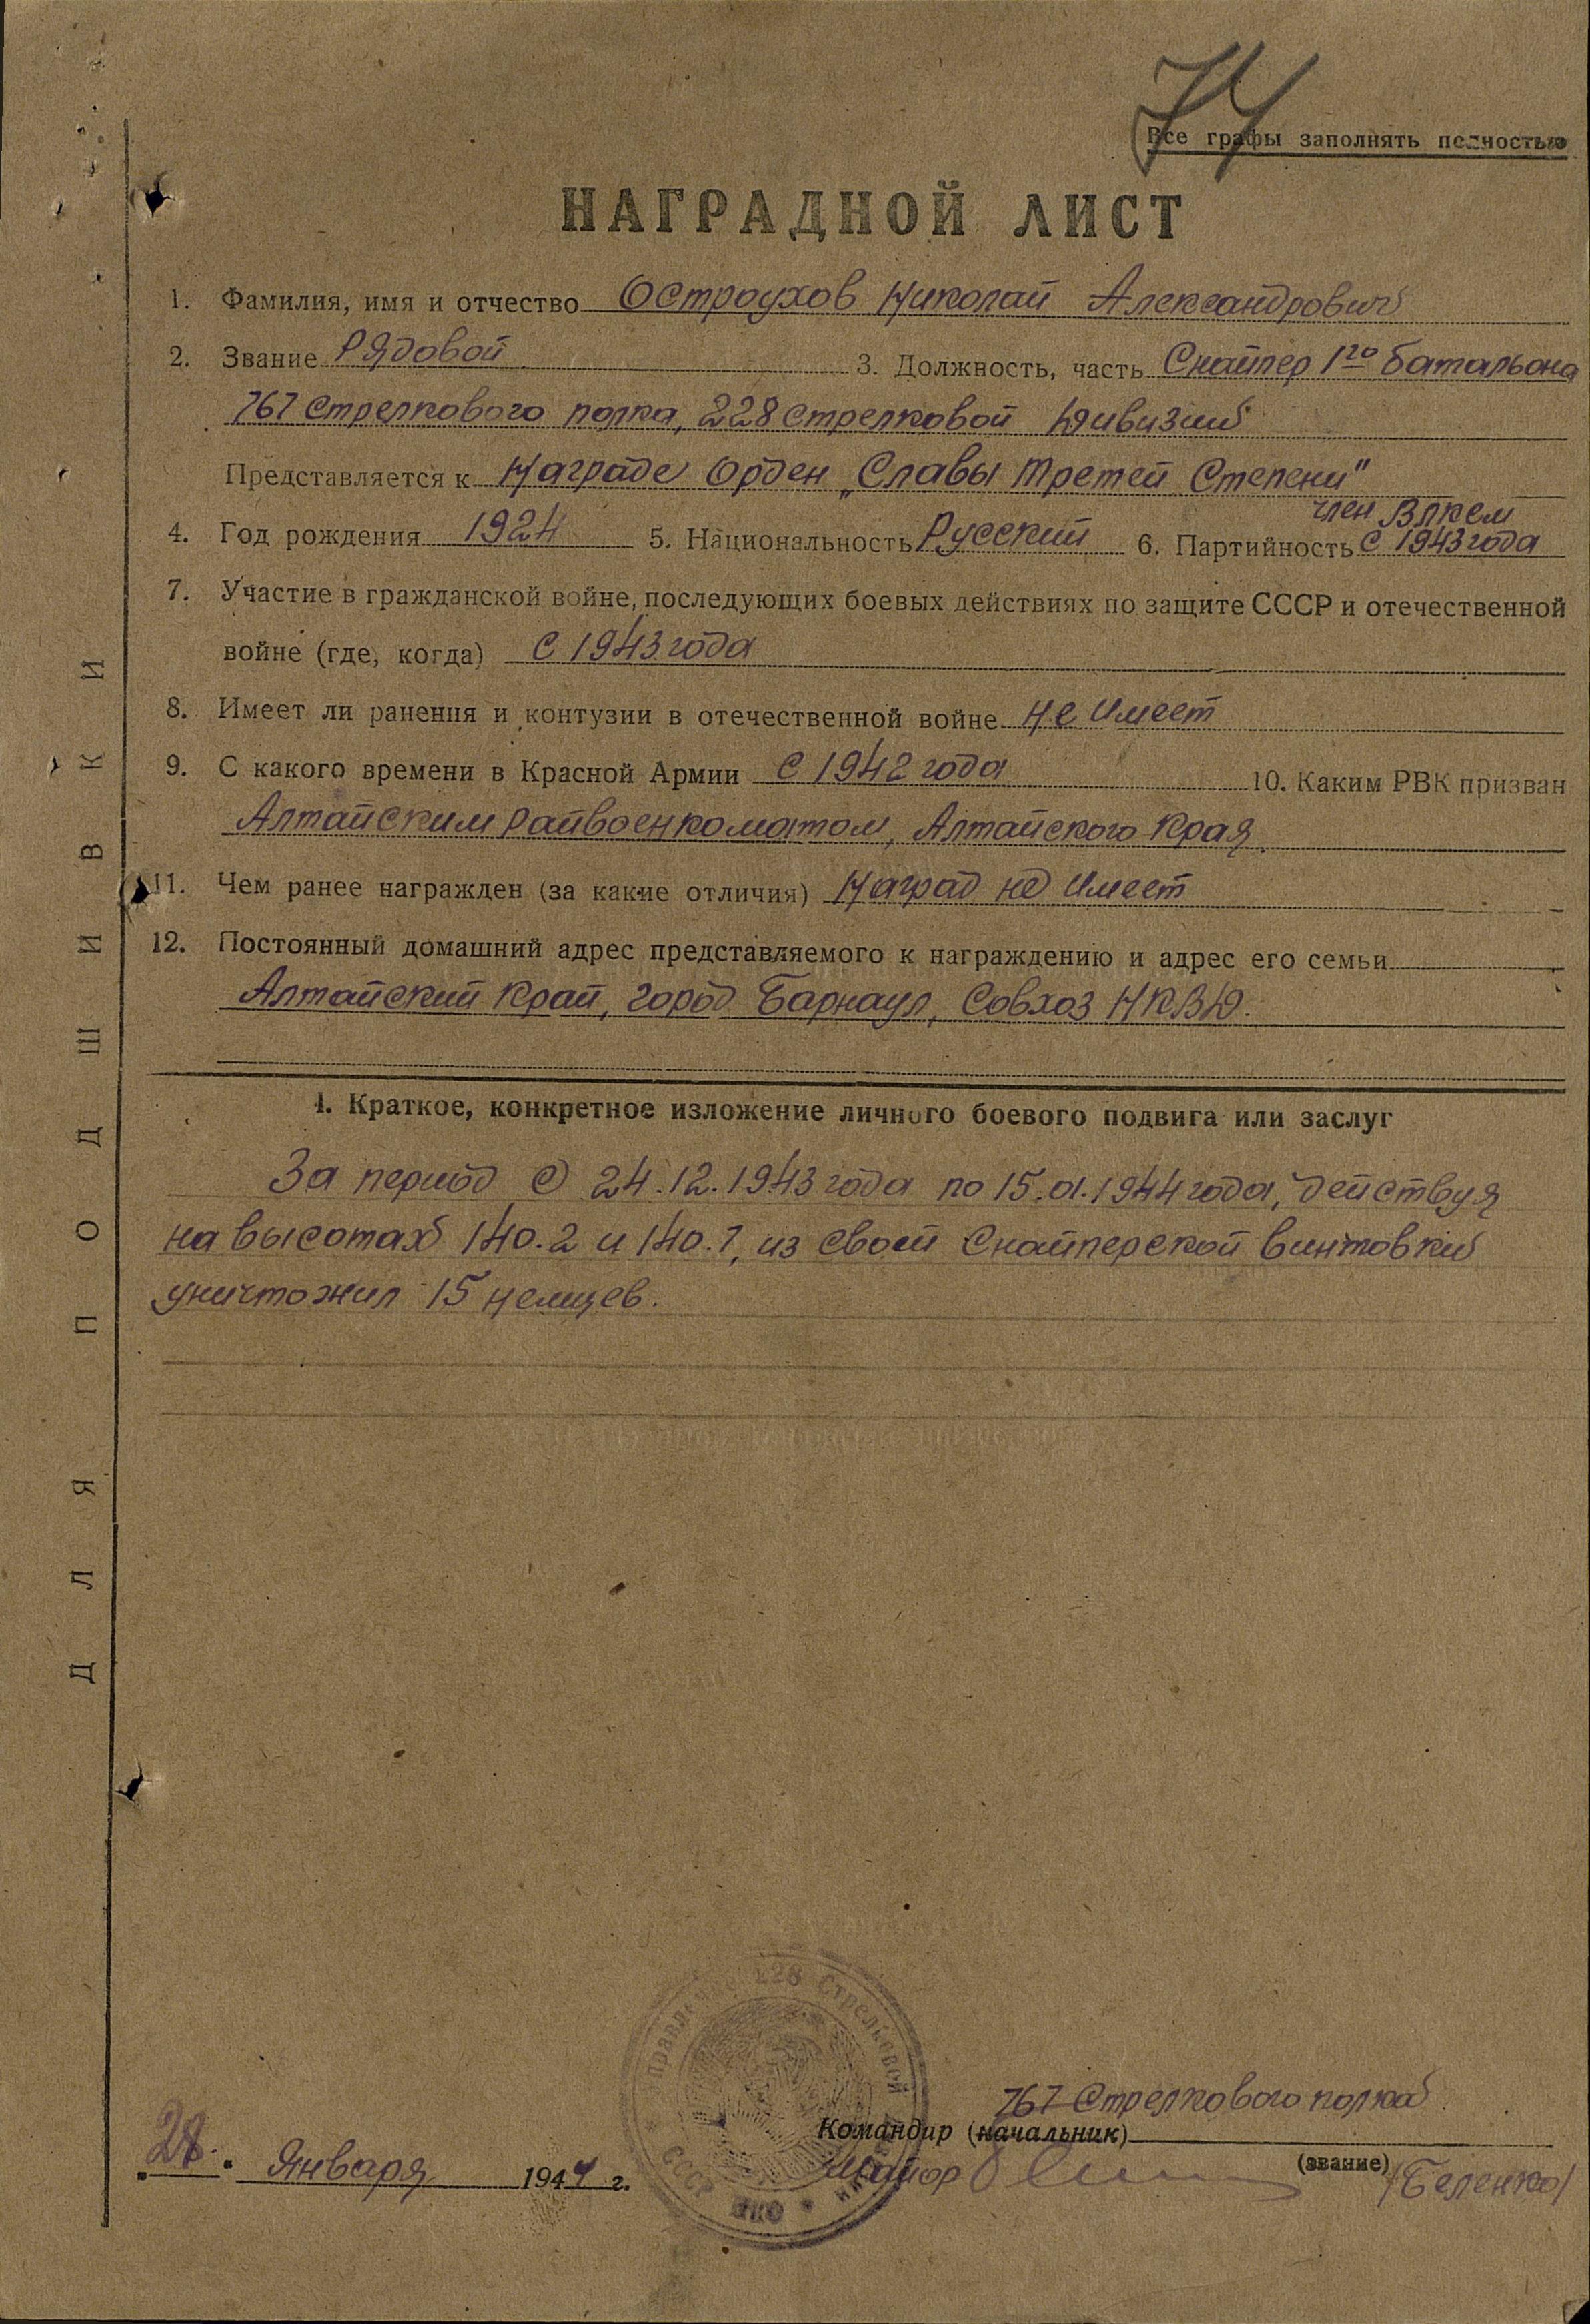 Все графы заполнять полностью
НАГРАДНОЙ ЛИСТ
1. Фамилия, имя и отчество Остроухов Николай Александрович
2. Звание Рядовой 3. Должность, часть Снайпер 1го батальона
767 стрелкового полка, 228 стрелковой дивизии
Представляется к Награде Орден „Славы третей Степени"
член ВЛКСМ
4. Год рождения 1924 5. Национальность Русский 6. Партийность с 1943 года
7. Участие в гражданской войне, последующих боевых действиях по защите СССР и отечественной
войне (где, когда) с 1943 года
8. Имеет ли ранения и контузии в отечественной войне не имеет
9. С какого времени в Красной Армии с 1942 года 10. Каким РВК призван
Алтайским райвоенкоматом, Алтайского Края
11. Чем ранее награжден (за какие отличия) Наград не имеет
12. Постоянный домашний адрес представляемого к награждению и адрес его семьи
Алтайский край, город Барнаул, Совхоз НКВД.
1. Краткое, конкретное изложение личного боевого подвига или заслуг
За период с 24.12.1943 года по 15.01.1944 года, действуя
на высотах 140.2 и 140.7, из своей Снайперской винтовки
уничтожил 15 немцев.
ДЛЯ ПОДШИВКИ
Управление 228 Стрелковой
СССР НКО
767 Стрелкового полка
Командир (начальник)
(звание)
28. Января 1944 г.
Майор /Беленко/